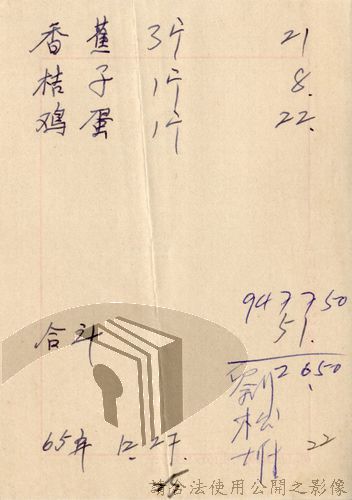 香蕉 3斤 21
桔子 1斤 8.
鸡蛋 1斤 22.
51.
合計
650
劉
松
22
65年 12.27.
請合法使用公開之影像